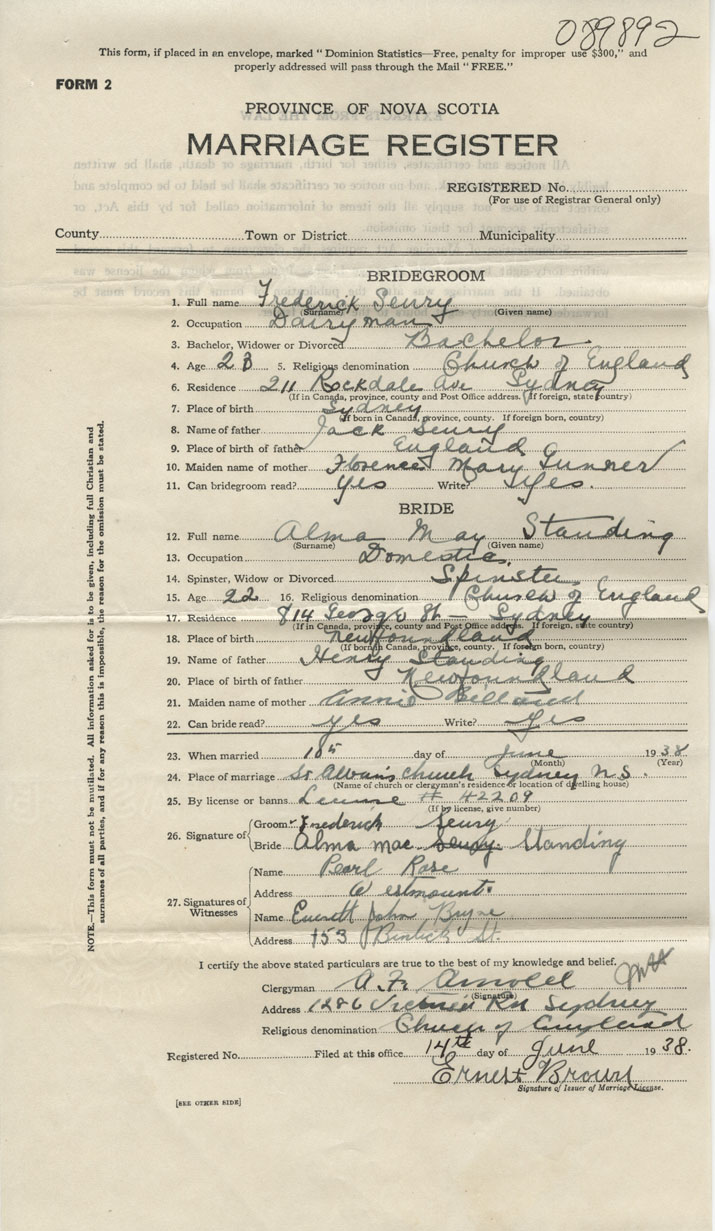 089892
This form, if placed in an envelope, marked "Dominion Statistics—Free, penalty for improper use $300," and
properly addressed will pass through the Mail "FREE."
FORM 2
PROVINCE OF NOVA SCOTIA
MARRIAGE REGISTER
REGISTERED No.
(For use of Registrar General only)
County Town or District Municipality
BRIDEGROOM
1. Full name Frederick Seury
(Surname) (Given name)
2. Occupation Dairyman
3. Bachelor, Widower or Divorced Bachelor
4. Age 23 5. Religious denomination Church of England
6. Residence 211 Rockdale Ave Sydney
(If in Canada, province, county and Post Office address. If foreign, state country)
7. Place of birth Sydney
(If born in Canada, province, county. If foreign born, country)
8. Name of father Jack Seury
9. Place of birth of father England
10. Maiden name of mother Florence Mary
11. Can bridegroom read? yes Write? Yes.
BRIDE
12. Full name Alma May Standing
(Surname) (Given name)
13. Occupation Domestic.
14. Spinster, Widow or Divorced Spinster
15. Age 22 16. Religious denomination Church of England
17. Residence 814 George St — Sydney
(If in Canada, province, county and Post Office address. If foreign, state country)
18. Place of birth Newfoundland
(If born in Canada, province, county. If foreign born, country)
19. Name of father Henry Standing
20. Place of birth of father Newfoundland
21. Maiden name of mother Annie
22. Can bride read? yes Write? Yes
23. When married day of June 1938
(Month) (Year)
24. Place of marriage St Alban's Church Sydney N.S.
(Name of church or clergyman's residence or location of dwelling house)
25. By license or banns License # 42209
(If by license, give number)
26. Signature of
Groom Frederick Seury
Bride Alma mae Seury Standing
27. Signatures of Witnesses
Name Pearl Rose
Address Westmount.
Name Everett John Bryne
Address 153 St.
I certify the above stated particulars are true to the best of my knowledge and belief.
Clergyman A. F. Arnold
(Signature)
Address 1286 Victoria Rd Sydney
Religious denomination Church of England
Registered No. Filed at this office 14th day of June 1938.
Ernest Brown
Signature of Issuer of Marriage License.
[SEE OTHER SIDE]
NOTE.—This form must not be mutilated. All information asked for is to be given, including full Christian and
surnames of all parties, and if for any reason this is impossible, the reason for the omission must be stated.